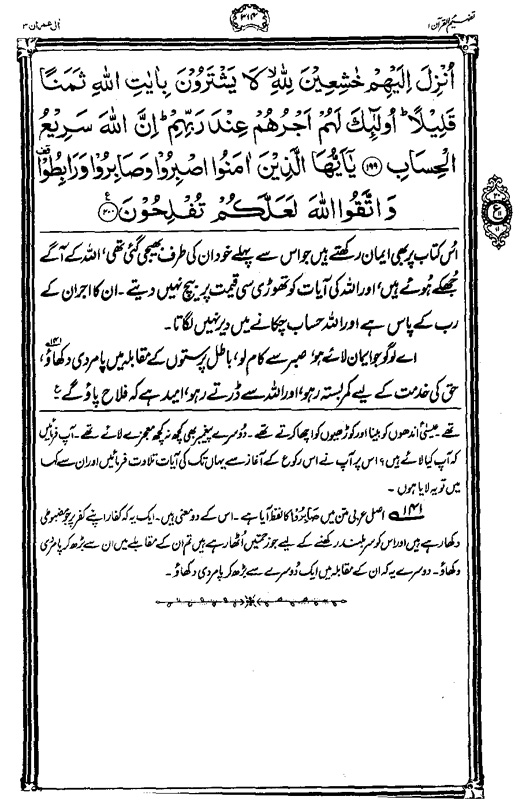 تفہیم القرآن ۱
۳۱۴
اٰل عمران ۳
اُنْزِلَ اِلَيْهِمْ خٰشِعِيْنَ لِلّٰهِ لَا يَشْتَرُوْنَ بِاٰيٰتِ اللّٰهِ ثَمَنًا
قَلِيْلًا ؕ اُولٰٓئِكَ لَهُمْ اَجْرُهُمْ عِنْدَ رَبِّهِمْ ؕ اِنَّ اللّٰهَ سَرِيْعُ
الْحِسَابِ ﴿۱۹۹﴾ يٰٓاَيُّهَا الَّذِيْنَ اٰمَنُوا اصْبِرُوْا وَصَابِرُوْا وَرَابِطُوْا
وَاتَّقُوا اللّٰهَ لَعَلَّكُمْ تُفْلِحُوْنَ ﴿۲۰۰﴾
ع
اُس کتاب پر بھی ایمان رکھتے ہیں جو اس سے پہلے خود ان کی طرف بھیجی گئی تھی، اللہ کے آگے
جھکے ہوئے ہیں، اور اللہ کی آیات کو تھوڑی سی قیمت پر بیچ نہیں دیتے۔ ان کا اجر ان کے
رب کے پاس ہے اور اللہ حساب چکانے میں دیر نہیں لگاتا۔
اے لوگو جو ایمان لائے ہو، صبر سے کام لو، باطل پرستوں کے مقابلہ میں پامردی دکھاؤ،۱۴۱
حق کی خدمت کے لیے کمربستہ رہو، اور اللہ سے ڈرتے رہو، امید ہے کہ فلاح پاؤ گے ع
تھے۔ عیسیٰؑ اندھوں کو بینا اور کوڑھیوں کو اچھا کرتے تھے۔ دوسرے پیغمبر بھی کچھ نہ کچھ معجزے لائے تھے۔ آپ فرمائیں
کہ آپ کیا لائے ہیں؟ اس پر آپ نے اس رکوع کے آغاز سے یہاں تک کی آیات تلاوت فرمائیں اور ان سے کہا
میں تو یہ لایا ہوں۔
۱۴۱ اصل عربی متن میں صَابِرُوْا کا لفظ آیا ہے۔ اس کے دو معنی ہیں۔ ایک یہ کہ کفار اپنے کفر پر جو مضبوطی
دکھا رہے ہیں اور اس کو سر بلند رکھنے کے لیے جو زحمتیں اُٹھا رہے ہیں تم ان کے مقابلے میں ان سے بڑھ کر پامردی
دکھاؤ۔ دوسرے یہ کہ ان کے مقابلہ میں ایک دُوسرے سے بڑھ کر پامردی دکھاؤ۔